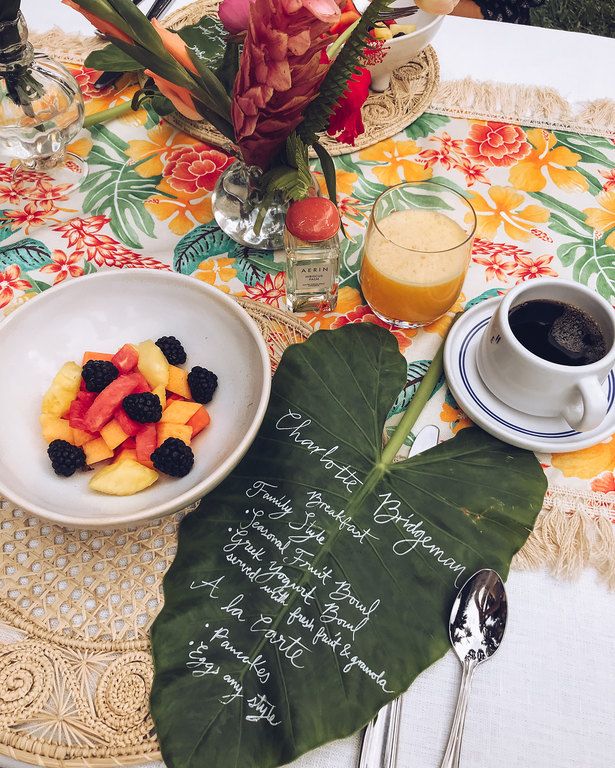 AERIN
HIBISCUS
PALM
Charlotte Bridgeman
Breakfast
Family Style
• Seasonal Fruit Bowl
• Greek Yogurt Bowl
served with fresh fruit & granola
A la Carte
• Pancakes
• Eggs any style